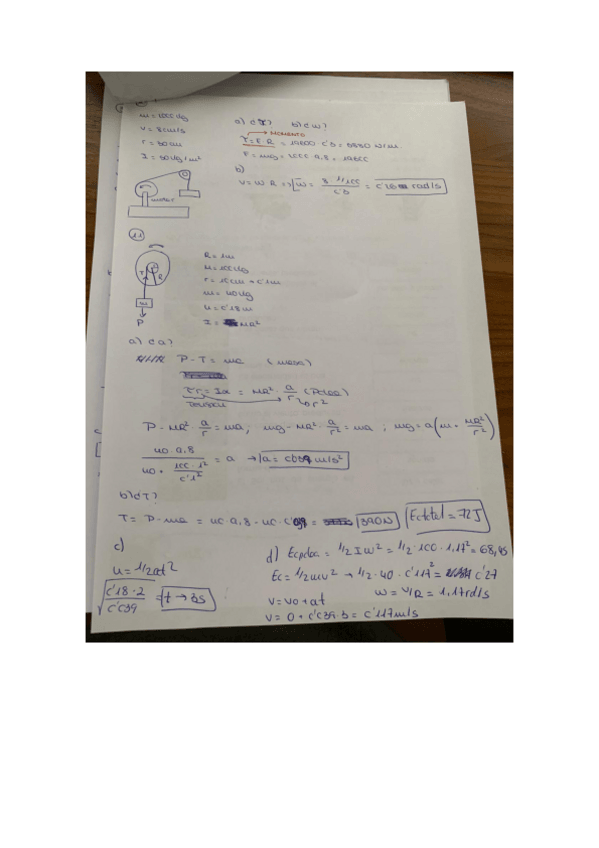 m = 1000 Kg
v = 8 cm/s
r = 30 cm
I = 50 Kg/m²
a) ¿τ? b) ¿w?
MOMENTO
τ = F·R = 19600 · 0'3 = 5880 N/m.
b)
motor
11
R = 1m
M = 100 Kg
r = 10cm = 0'1m
m = 40 Kg
h = 0'18m
I = MR²
T R
m
P
a) ¿a?
P - T = ma (masa)
τr = Iα = MR² · a/r (Polea)
P - MR² · a/r² = ma, mg - MR² · a/r² = ma ; mg = a(m + MR²/r²)
40·9.8 / 40 + 100·1²/0'1² = a → a = 0'039 m/s²
b) ¿T?
T = P - ma = 40·9.8 - 40·0'039 = 390N
Ectotal = 72J
c)
h = 1/2at²
√0'18·2/0'039 = t → 3s
d) Ecpolea = 1/2 I w² = 1/2 · 100 · 1,17² = 68,45
Ec = 1/2mv² → 1/2 · 40 · 0'117² = 0'27
w = v/R = 1,17rd/s
v = v0 + at
v = 0 + 0'039·3 = 0'117m/s